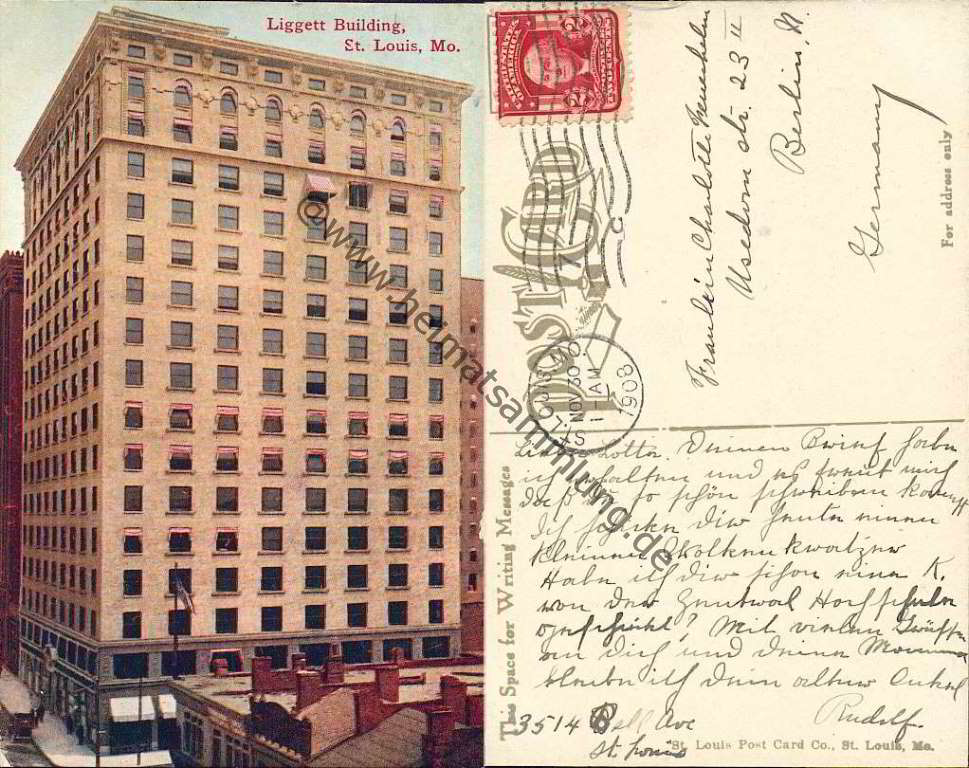 Liggett Building,
St. Louis, Mo.
@www.heimatsammlung.de
POST CARD
NOV 30
11 AM
1908
Fraulein Charlotte
Usedom str. 23 II
Berlin, N.
Germany
For address only
This Space for Writing Messages
Liebe Lotte. Deinen Brief habe
ich erhalten und es freut mich
daß du so schön schreiben kannst
Ich schicke dir heute einen
kleinen
Habe ich dir schon eine K.
von der Zentral Hochschule
geschickt? Mit vielen Grüßen
an Dich und deine Mama
bleibe ich dein alter Onkel
Rudolf
3514 Bell Ave
St. Louis
St. Louis Post Card Co., St. Louis, Mo.